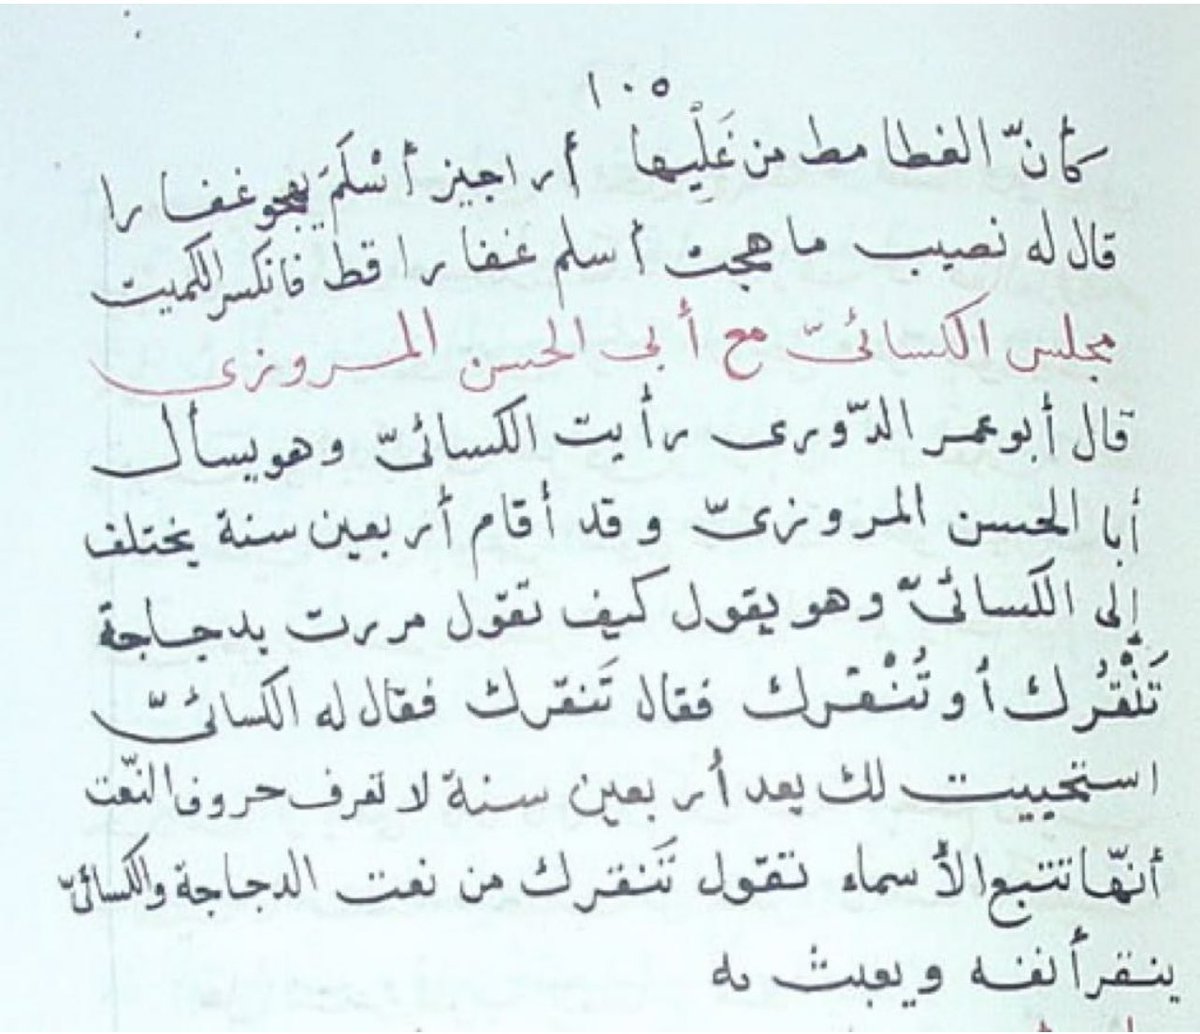 ١٠٥
كأنّ الغطامط من غَلْيِها أراجيز أسْلَمَ يهجو غفارا
قال له نصيب ما هجت أسلم غفارا قط فانكسر الكميت
مجلس الكسائىّ مع أبى الحسن المروزى
قال أبو عمر الدّورى رأيت الكسائىّ وهو يسأل
أبا الحسن المروزىّ وقد أقام أربعين سنة يختلف
إلى الكسائىّ وهو يقول كيف تقول مررت بدجاجة
تَنْقُرُك أو تُنْقرك فقال تَنقرك فقال له الكسائىّ
استحييت لك بعد أربعين سنة لا تعرف حروف النّعت
أنّها تتبع الأسماء تقول تَنقرك من نعت الدجاجة والكسائىّ
ينقر أنفه ويعبث به